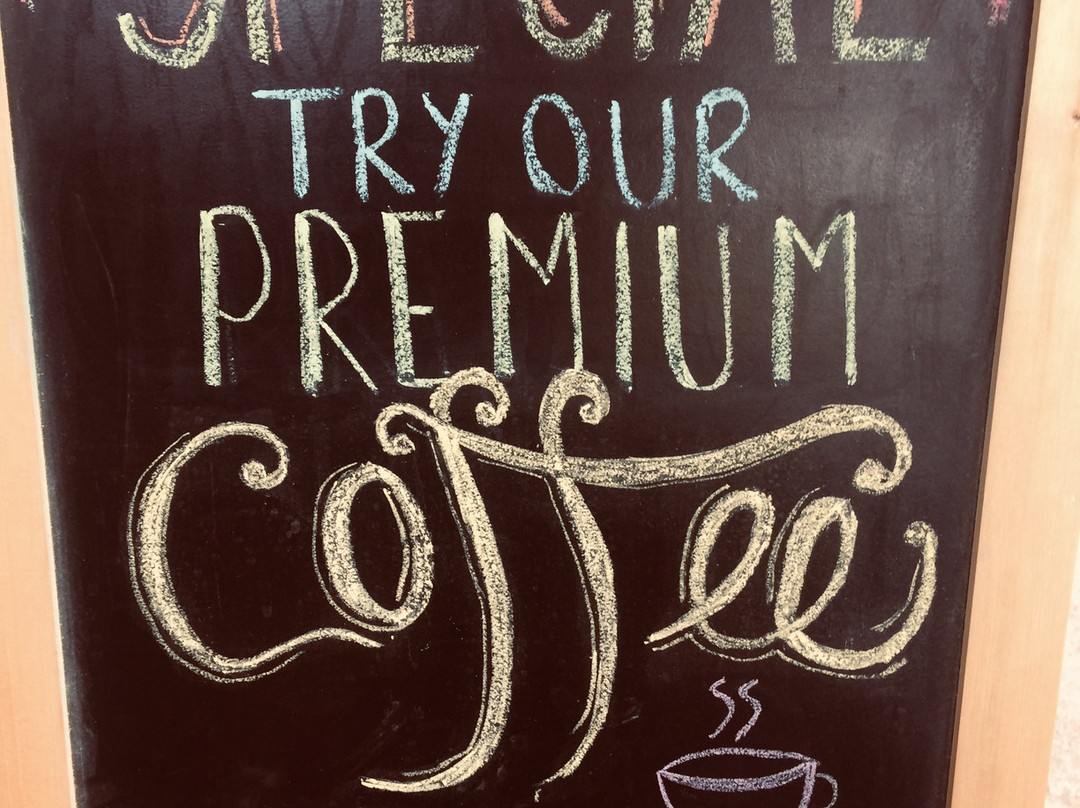 SPECIAL
TRY OUR
PREMIUM
Coffee